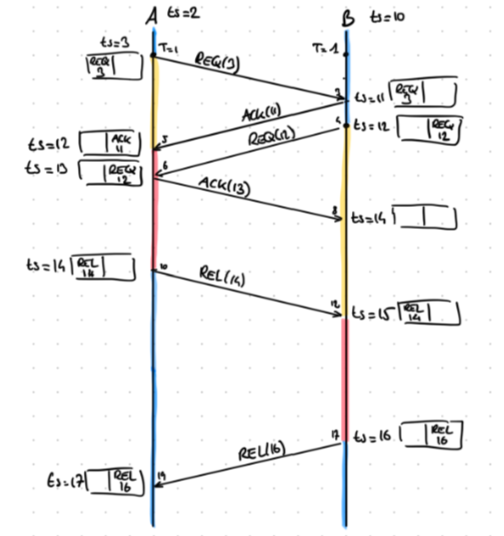 A ts=2
B ts=10
ts=3
T=1
T=1
REQ 3
REQ(3)
3
ts=11
REQ 3
ACK(11)
4
ts=12
REQ 12
REQ(12)
ts=12
ACK 11
5
ts=13
REQ 12
6
ACK(13)
8
ts=14
ts=14
REL 14
10
REL(14)
12
ts=15
REL 14
17
ts=16
REL 16
REL(16)
ts=17
REL 16
19